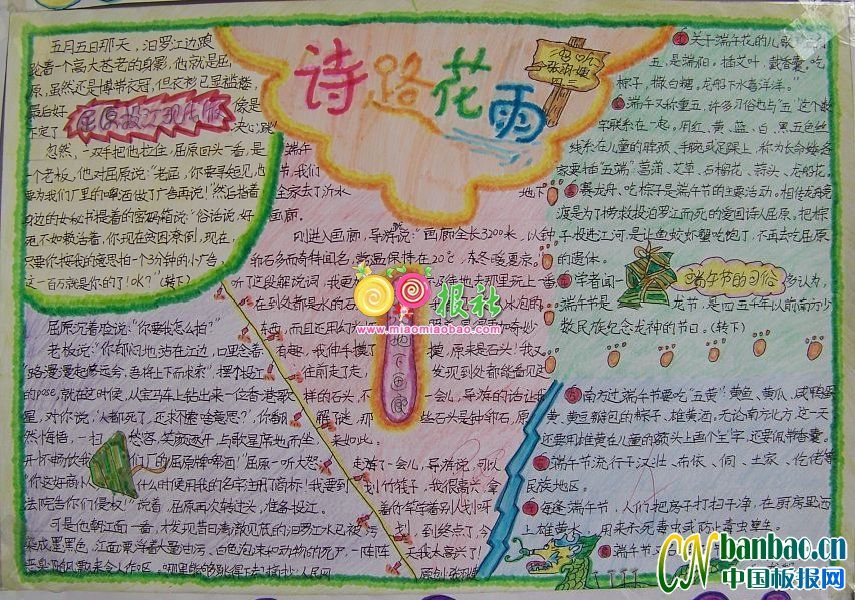 诗路花雨
五月五日那天，汨罗江边踱
踱着一个高大苍老的身影，他就是屈
原，虽然还是博带衣冠，但衣衫已显褴褛，
最后好
屈原投江现代版
忽然，一双手把他拉住，屈原回头一看，是
一个老板，他对屈原说：“老屈，你要寻短见，也
要为我们厂里的啤酒做了广告再说！”然后指着
身边的女秘书提着的密码箱说：“俗话说，好
死不如赖活着，你现在贫困潦倒，现在，
只要你按我的意思拍一个3分钟的小广告，
这一百万就是你的了！OK？”(转下)
屈原沉着脸说：“你要我怎么拍？”
老板说：“你郁闷地站在江边，口里念着
‘路漫漫其修远兮，吾将上下而求索’，摆个投江
的pose，就在这时候，从宝马车上钻出来一位香港歌
星，对你说，人都死了，还求索啥意思？’你翻
然悔悟，一扫
愁容，笑颜逐开，与歌星席地而坐，
开怀畅饮我
们厂的屈原牌啤酒。”屈原一听大怒：
“你这奸商
什么时候用我的名字注册了商标！我要到
法院告你们侵权！”说着，屈原再次转过头，准备投江。
可是他朝江面一看，才发现昔日清澈见底的汨罗江水已被污
染成墨黑色，江面漂浮着大量油污、白色泡沫和动物的死尸，一阵阵
端午
节，我们
全家去了沂水
地下
画廊。
刚进入画廊，导游说：“画廊全长3200米，以钟
卵石多而奇特闻名，常温保持在20℃，冬暖夏凉。”
听了这段解说词，我更加
在到处都是水的石
东西，而且还用幻灯
有趣，我伸手摸了
摸，原来是石头！我又
往前走了走，
发现到处都能看见
样的石头，不
一会儿，导游的话让我
解了谜，那
些石头是钟卵石，原
来如此。
走了一会儿，导游说，可以
划竹筏子，我很高兴，拿
着竹竿学着别人划呀
划，到终点了，今
天我太高兴了！
地下画廊
关于端午花的儿歌
五，是端阳，插艾叶，戴香囊。吃
粽子，撒白糖。龙船下水喜洋洋。”
端午又称重五，许多习俗也与“五”这个数
字联系在一起。用红、黄、蓝、白、黑五色丝
线系在儿童的脖颈、手腕或足踝上，称为长命缕。各
家要插“五端”菖蒲、艾草、石榴花、蒜头、龙船花。
赛龙舟、吃粽子是端午节的主要活动。相传龙舟竞
渡是为了捞救投汨罗江而死的爱国诗人屈原。把粽
子投进江河，是让鱼蛟虾蟹吃饱了，不再去吃屈原
的遗体。
学者闻一
多认为，
端午节的习俗
端午节是
龙节，是四五千年以前南方少
数民族纪念龙神的节日。(转下)
南方过端午节要吃“五黄”：黄鱼、黄瓜、咸鸭蛋
黄、黄豆瓣包的粽子、雄黄酒，无论南方北方，这一天
还要用雄黄在儿童的额头上画个“王”字，还要佩带香囊。
端午节流行于汉、壮、布依、侗、土家、仡佬等
民族地区。
每逢端午节，人们把房子打扫干净，在厨房里洒
上雄黄水，用来杀死毒虫或防止毒虫孳生。
端午节
报社
www.miaomiaobao.com
CN banbao.cn
中国板报网